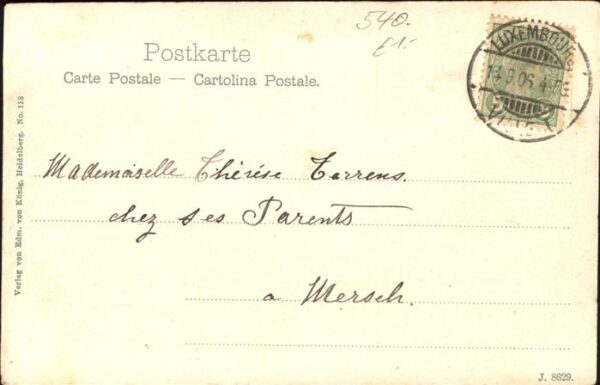 540.
£1.-
Postkarte
Carte Postale — Cartolina Postale.
LUXEMBOURG
9.06. 4
VILLE
Mademoiselle Thérèse Terrens.
chez ses Parents
a Mersch.
Verlag von Edm. von König, Heidelberg. No. 113
J. 8629.